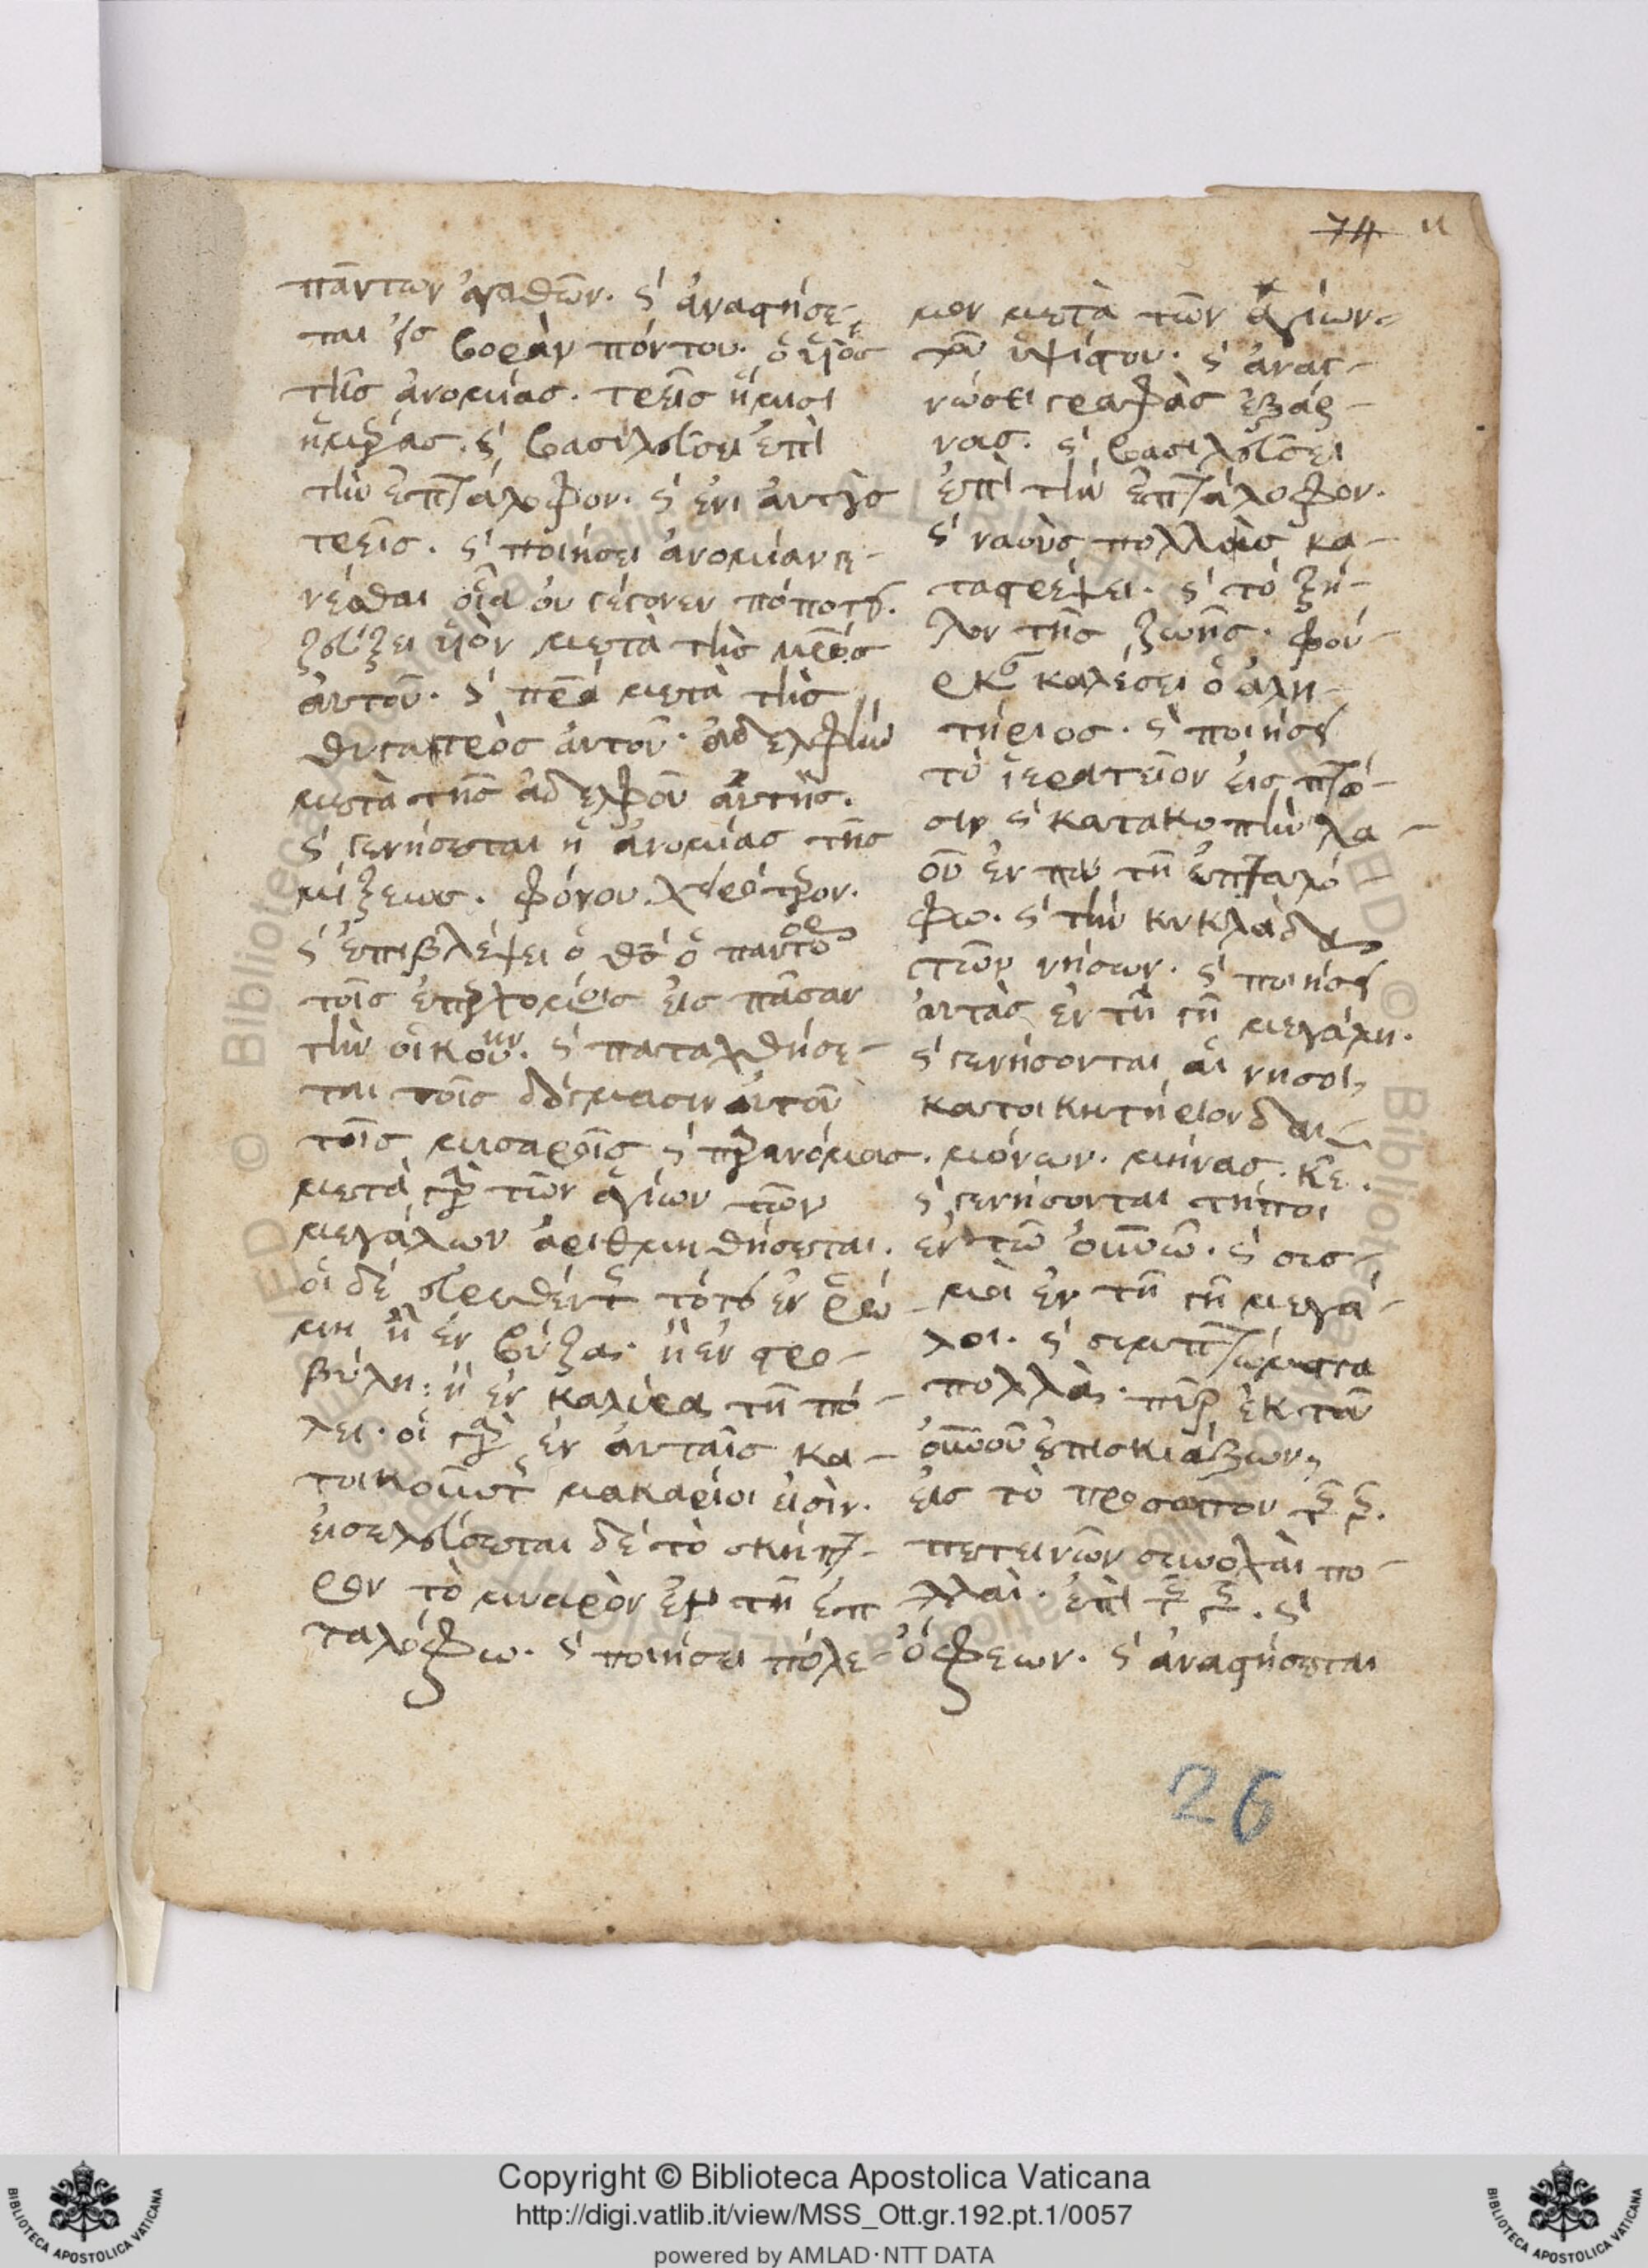 74 11
πάντων ἀγαθῶν. ϛ ἀναστήσε-
ται εἰς βορὰν πόντου. ὁ ὑιὸς
τῆς ἀνομίας. τρεῖς ἥμισι
ἡμέρας. ϛ βασιλεύσει ἐπὶ
τὴν ἑπτάλοφον. ϛ ἐνιαυτοὺς
τρεῖς. ϛ ποιήσει ἀνομίαν γε-
νέσθαι οἷα οὐ γέγονεν πόποτε.
ζεύξει ὑιὸν μετὰ τῆς μρς
αὐτοῦ. ϛ πρα μετὰ τῆς
θυγατρὸς αὐτοῦ. ἀδελφὴν
μετὰ τῆς ἀδελφοῦ αὐτῆς.
ϛ γενήσεται ἡ ἀνομίας τῆς
μίξεως. φόνου χειρότερον.
ϛ ἐπιβλέψει ὁ θς ὁ παντο
τοῖς εἰς πᾶσαν
τὴν οἰκουν. ϛ παταχθήσε-
ται τοῖς αὐτοῦ
τοῖς μυσαροῖς ϛ παρανόμοις.
μετὰ γὰρ τῶν ἁγίων τῶν
μεγάλων ἀριθμηθήσεται.
οἱ δὲ εὑρεθέντες τότε ἐν ῥώ-
μη ἢ ἐν ῥύζα. ἢ ἐν στρο-
βύλη: ἢ ἐν καλύρα τῆ πό-
λει. οἱ γὰρ ἐν αὐταῖς κα-
τοικοῦντες μακάριοι εἰσίν.
εἰσελεύσεται δὲ τὸ σκήπτ-
ρον τὸ μιαρὸν ἐν τῆ ἑπ
ταλόφω. ϛ ποιήσει πόλε-
μον μετὰ τῶν ἁγίων
τοῦ ὑψίστου. ϛ αναγ-
νώσει γραφὰς ἐβάρ-
νας. ϛ βασιλεύσει
ἐπὶ τὴν ἑπτάλοφον.
ϛ ναοὺς πολλοὺς κα-
ταστρέψει. ϛ τὸ ξή-
λον τῆς ζωῆς. φού-
ρκα καλέσει ὁ ἀλη-
τήριος. ϛ ποιήσει
τὸ ἱερατεῖον εἰς πτῶ-
σιν ϛ κατακοπὴν λα-
οῦ ἐν τῆ ἑπταλό
φω. ϛ τὴν κυκλάδα
τῶν νήσων. ϛ ποιήσει
αὐτὰς ἐν τῆ γῆ μεγάλη.
ϛ γενήσονται αἱ νησοι
κατοικητήριον δαι-
μόνων. μήνας. κε.
ϛ γενήσονται τήποι
ἐν τῶ οὐνῶ. ϛ σισ-
μοὶ ἐν τῆ γῆ μεγά-
λοι. ϛ σιμπτώματα
πολλὰ. πῦρ ἐκ τοῦ
οὐνοῦ ἐπισκιάζων
εἰς τὸ πρόσωπον γῆς.
πετεινῶν συνοχαὶ πο-
λλαὶ. ἐπὶ γῆς. ϛ
ὄφεων. ϛ ἀναστήσεται
26
Copyright © Biblioteca Apostolica Vaticana
http://digi.vatlib.it/view/MSS_Ott.gr.192.pt.1/0057
powered by AMLAD·NTT DATA
BIBLIOTECA APOSTOLICA VATICANA
BIBLIOTECA APOSTOLICA VATICANA